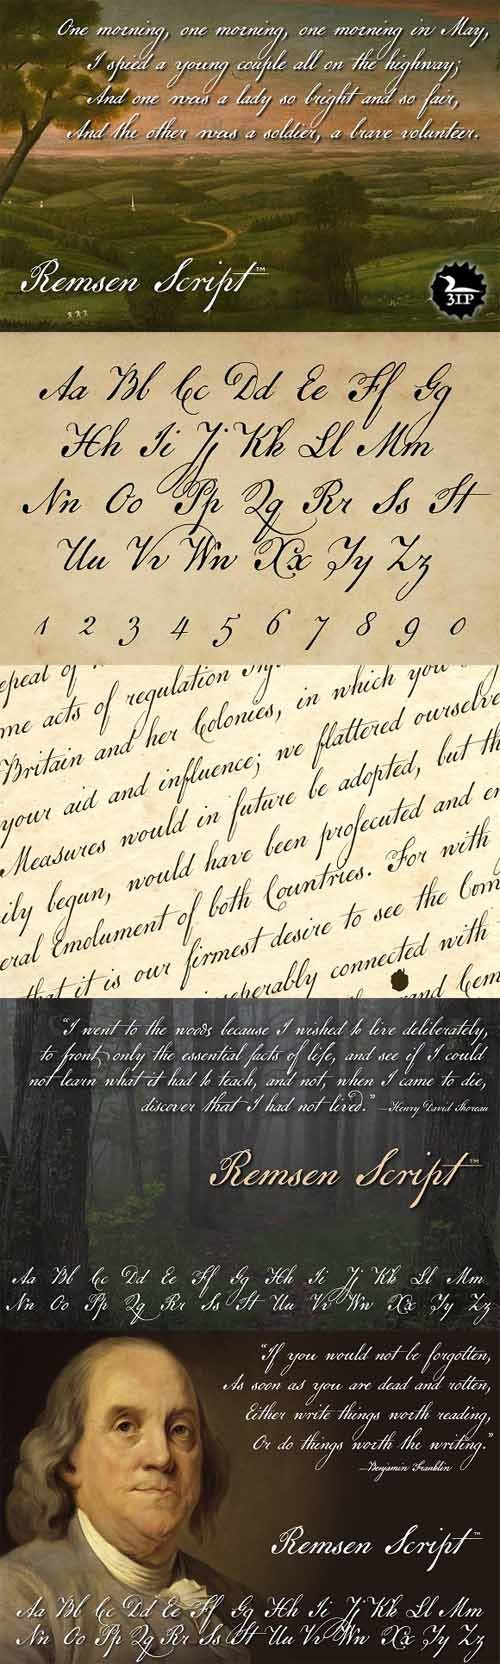 One morning, one morning, one morning in May,
I spied a young couple all on the highway;
And one was a lady so bright and so fair,
And the other was a soldier, a brave volunteer.
Remsen Script™
3IP
Aa Bb Cc Dd Ee Ff Gg
Hh Ii Jj Kk Ll Mm
Nn Oo Pp Qq Rr Ss Tt
Uu Vv Ww Xx Yy Zz
1 2 3 4 5 6 7 8 9 0
me acts of regulation
Britain and her Colonies, in which you
your aid and influence; we flattered ourselve
Measures would in future be adopted, but th
ily begun, would have been prosecuted and
eral Emolument of both Countries. For with
that it is our firmest desire to see the Com
inseperably connected with
and
“I went to the woods because I wished to live deliberately,
to front only the essential facts of life, and see if I could
not learn what it had to teach, and not, when I came to die,
discover that I had not lived.” —Henry David Thoreau
Remsen Script™
Aa Bb Cc Dd Ee Ff Gg Hh Ii Jj Kk Ll Mm
Nn Oo Pp Qq Rr Ss Tt Uu Vv Ww Xx Yy Zz
“If you would not be forgotten,
As soon as you are dead and rotten,
Either write things worth reading,
Or do things worth the writing.”
—Benjamin Franklin
Remsen Script™
Aa Bb Cc Dd Ee Ff Gg Hh Ii Jj Kk Ll Mm
Nn Oo Pp Qq Rr Ss Tt Uu Vv Ww Xx Yy Zz